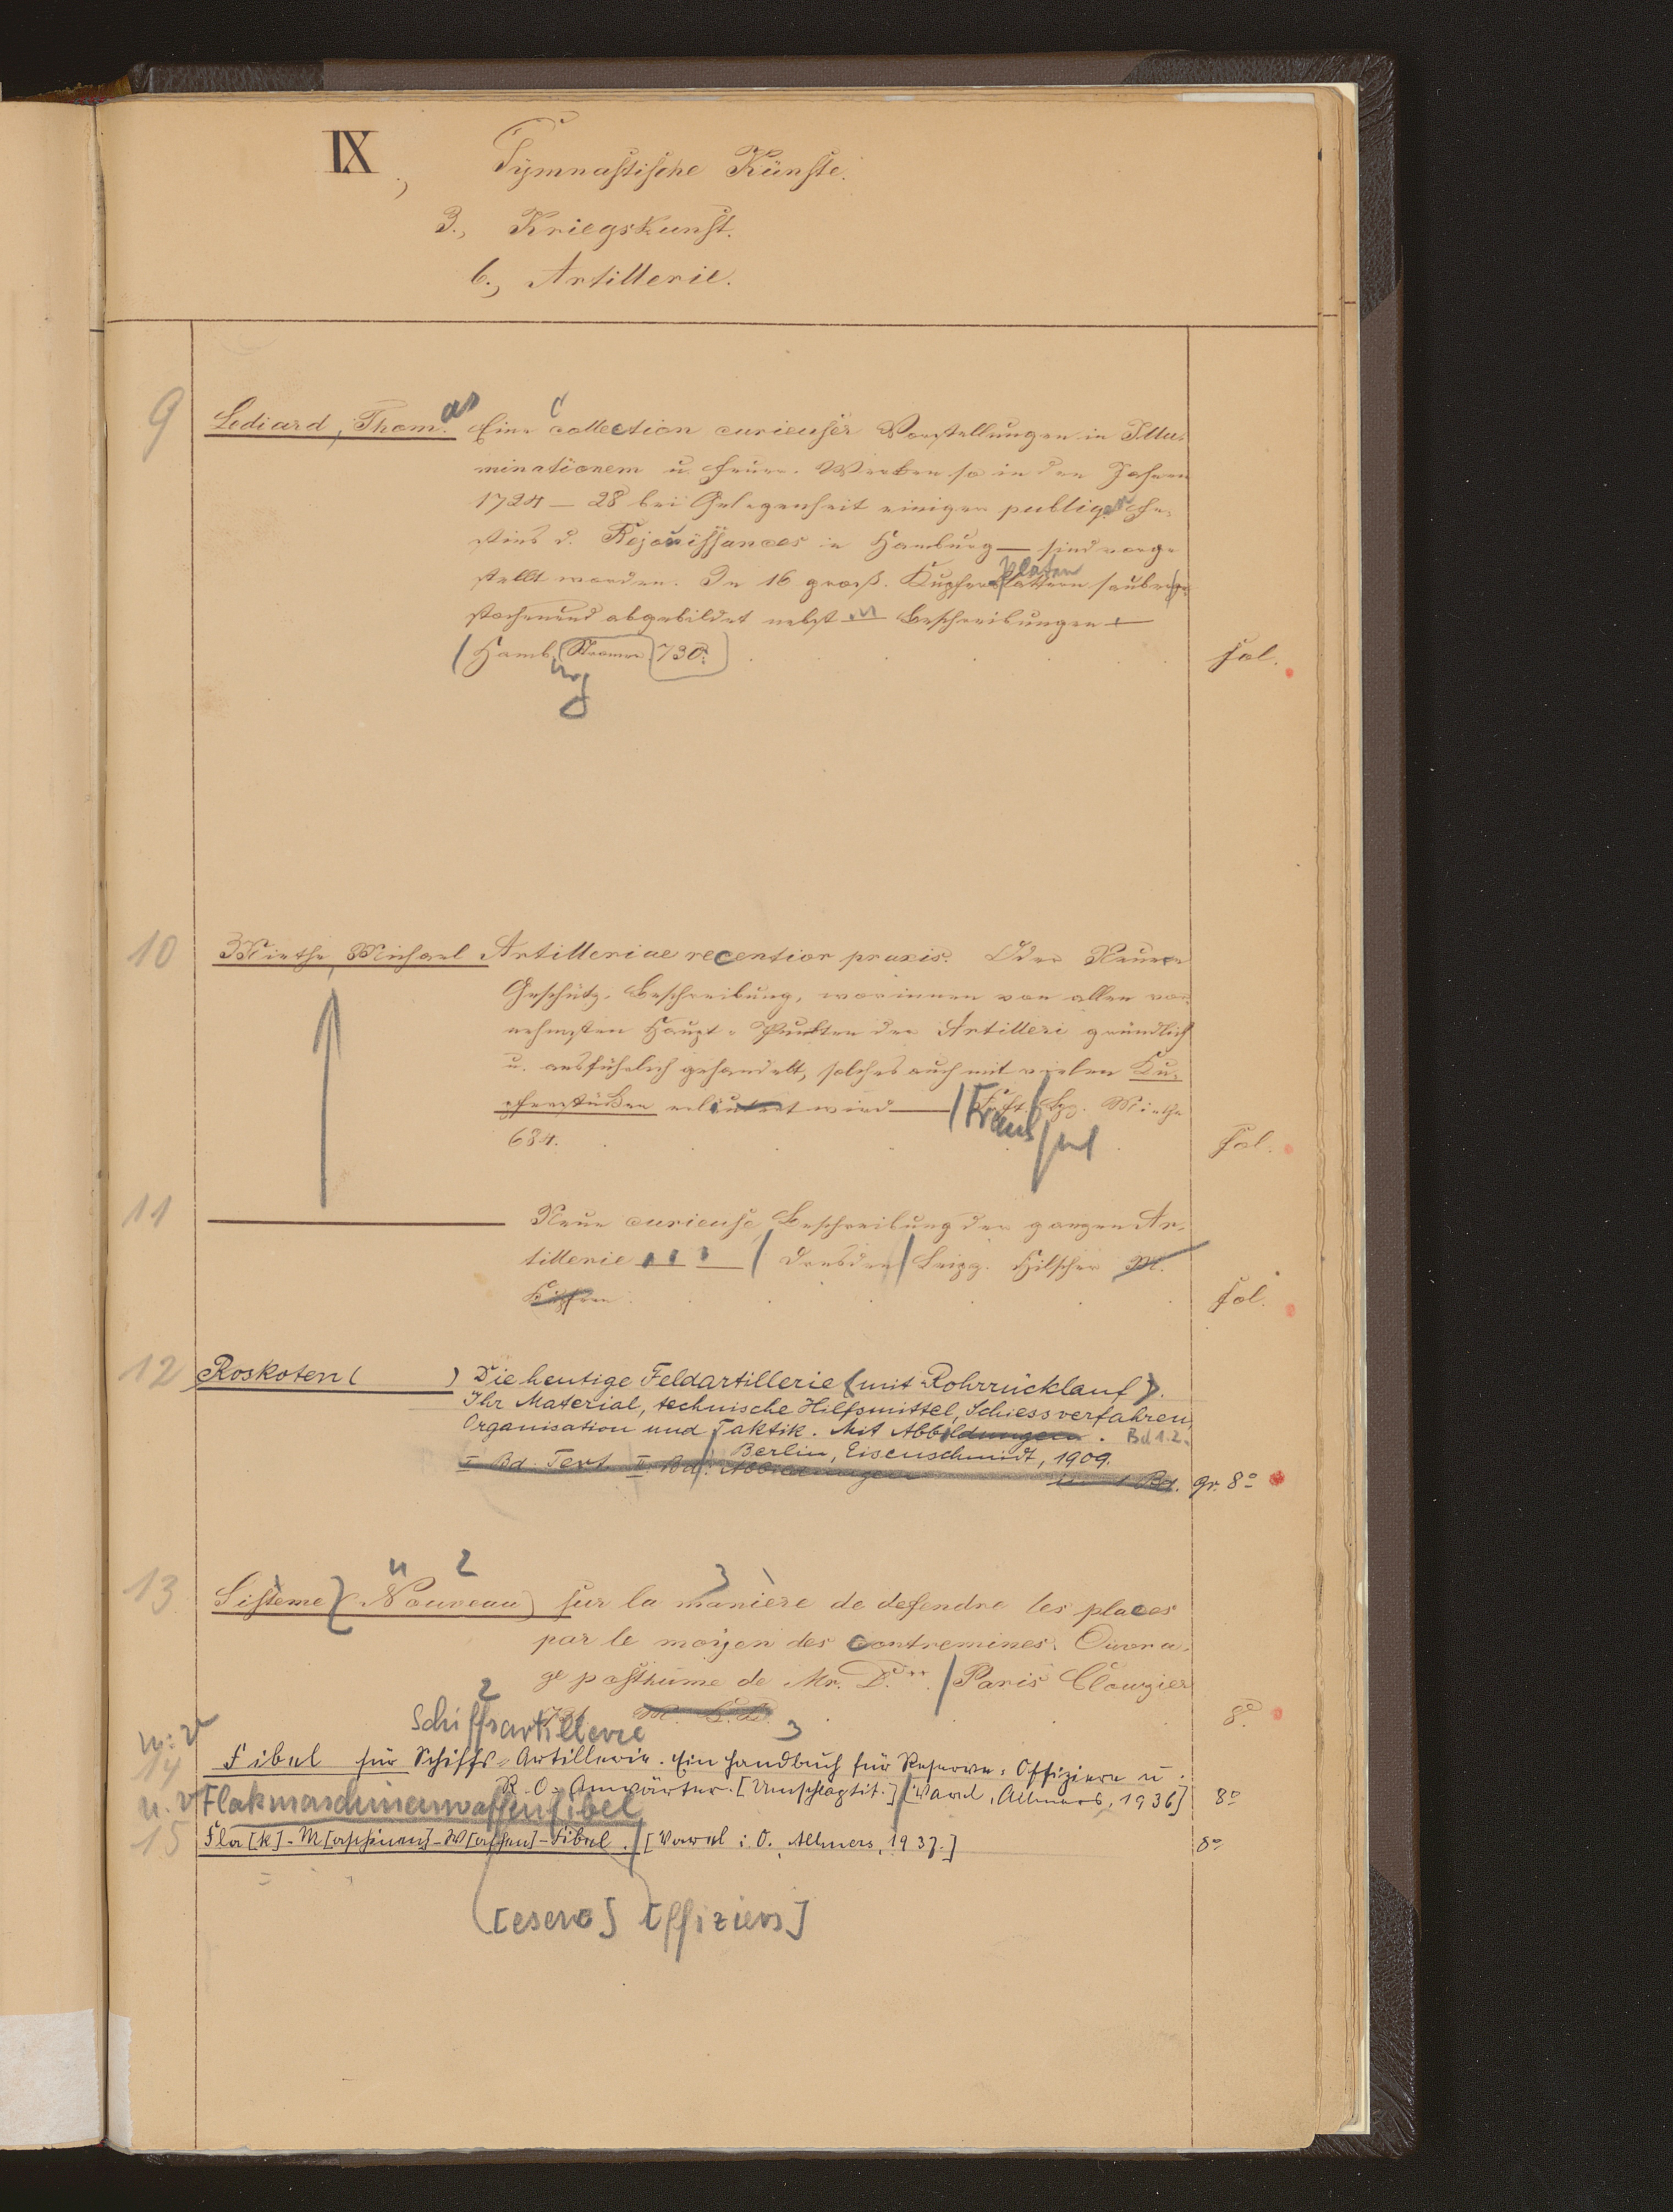 IX.,
Gymnastische Künste.
3., Kriegskunst.
6., Artillerie.
9
Lediard, Thom.as Eine collection curieuser Vorstellungen in Illu-
minationem u. Feuer-Werken so in den Jahren
1724 — 28 bei Gelegenheit einiger publiquen Fe-
stins d. Rejouissances in Hamburg — sind vorge
stellt worden. In 16 gross. Kupfer platten sauber ge
platen
stochen und abgebildet nebst Beschreibungen
(Hamb. 730.)
urg
fol.
10
Miethe, Michael Artilleriae recentior praxis. Oder Neuere
Geschütz-Beschreibung, worinnen von allen vor-
nehmsten Haupt-Punkten der Artilleri gründlich
u. ausführlich gehandelt, solches auch mit vielen Ku-
pferstücken erläutert wird — / Frkf. / Lpz. Miethe
Frankfurt
684.
fol.
11
Neue curieuse Beschreibung der ganzen Ar-
tillerie ... — / Dresden / Leipz. Hilscher M.
Kupfern
fol.
12
Roskoten ( ) Die heutige Feldartillerie (mit Rohrrücklauf).
Ihr Material, technische Hilfsmittel, Schiessverfahren,
Organisation und Taktik. Mit Abbildungen. Bd 1.2.
Berlin, Eisenschmidt, 1909.
I Bd. Text II. Bd: Abbildungen
Bd.
gr. 8°
13
2
3
Sisteme (Nouveau) sur la manière de defendre les places
par le moyen des contremines. Ouvra-
ge posthume de Mr. D.*** / Paris Clouzier
8°
2
Schiffsartillerie
3
14
Fibel für Schiffs-Artillerie. Ein Handbuch für Reserve-Offiziere u.
R.-O.-Anwärter. [Umschlagtit.] / [Varel, Allmers, 1936]
8°
Flakmaschinenwaffenfibel
15
Fla[k]-M[aschinen]-W[affen]-Fibel. / [Varel: O. Allmers, 1937.]
8°
[eserve] [ffiziers]